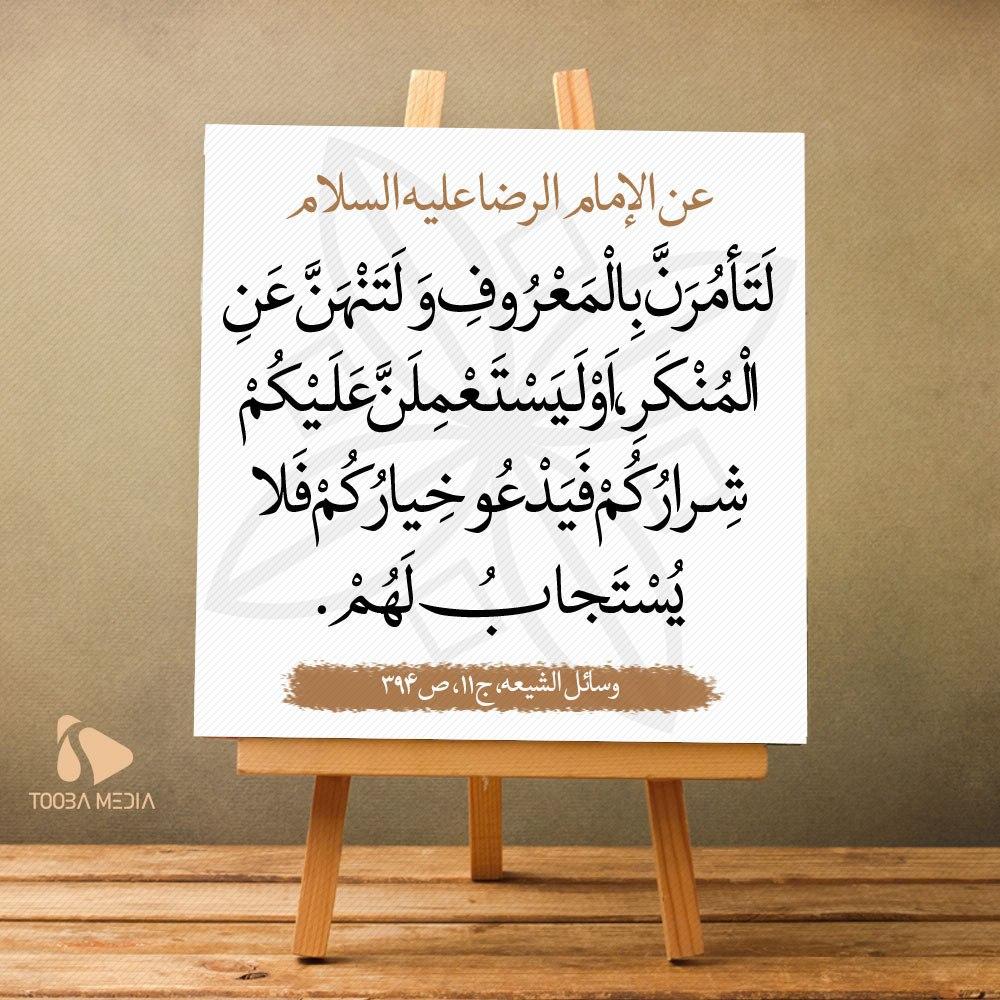 عن الإمام الرضا عليه السلام
لَتَأمُرَنَّ بِالْمَعْرُوفِ وَ لَتَنْهَنَّ عَنِ
الْمُنْكَرِ، اَوْ لَيَسْتَعْمِلَنَّ عَلَيْكُمْ
شِرارُكُمْ فَيَدْعُو خِيارُكُمْ فَلا
يُسْتَجابُ لَهُمْ.
وسائل الشیعه، ج۱۱، ص۳۹۴
TOOBA MEDIA